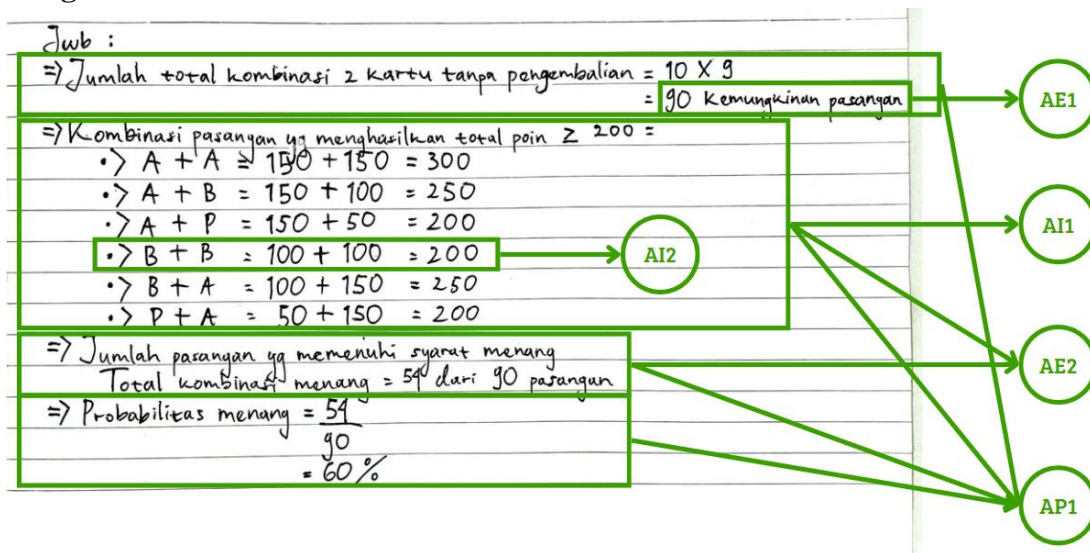 Jwb :
=> Jumlah total kombinasi 2 kartu tanpa pengembalian = 10 X 9
= 90 kemungkinan pasangan
AE1
=> Kombinasi pasangan yg menghasilkan total poin ≥ 200 =
•> A + A = 150 + 150 = 300
•> A + B = 150 + 100 = 250
•> A + P = 150 + 50 = 200
AI1
•> B + B = 100 + 100 = 200
AI2
•> B + A = 100 + 150 = 250
•> P + A = 50 + 150 = 200
=> Jumlah pasangan yg memenuhi syarat menang
Total kombinasi menang = 54 dari 90 pasangan
AE2
=> Probabilitas menang = 54
90
= 60 %
AP1